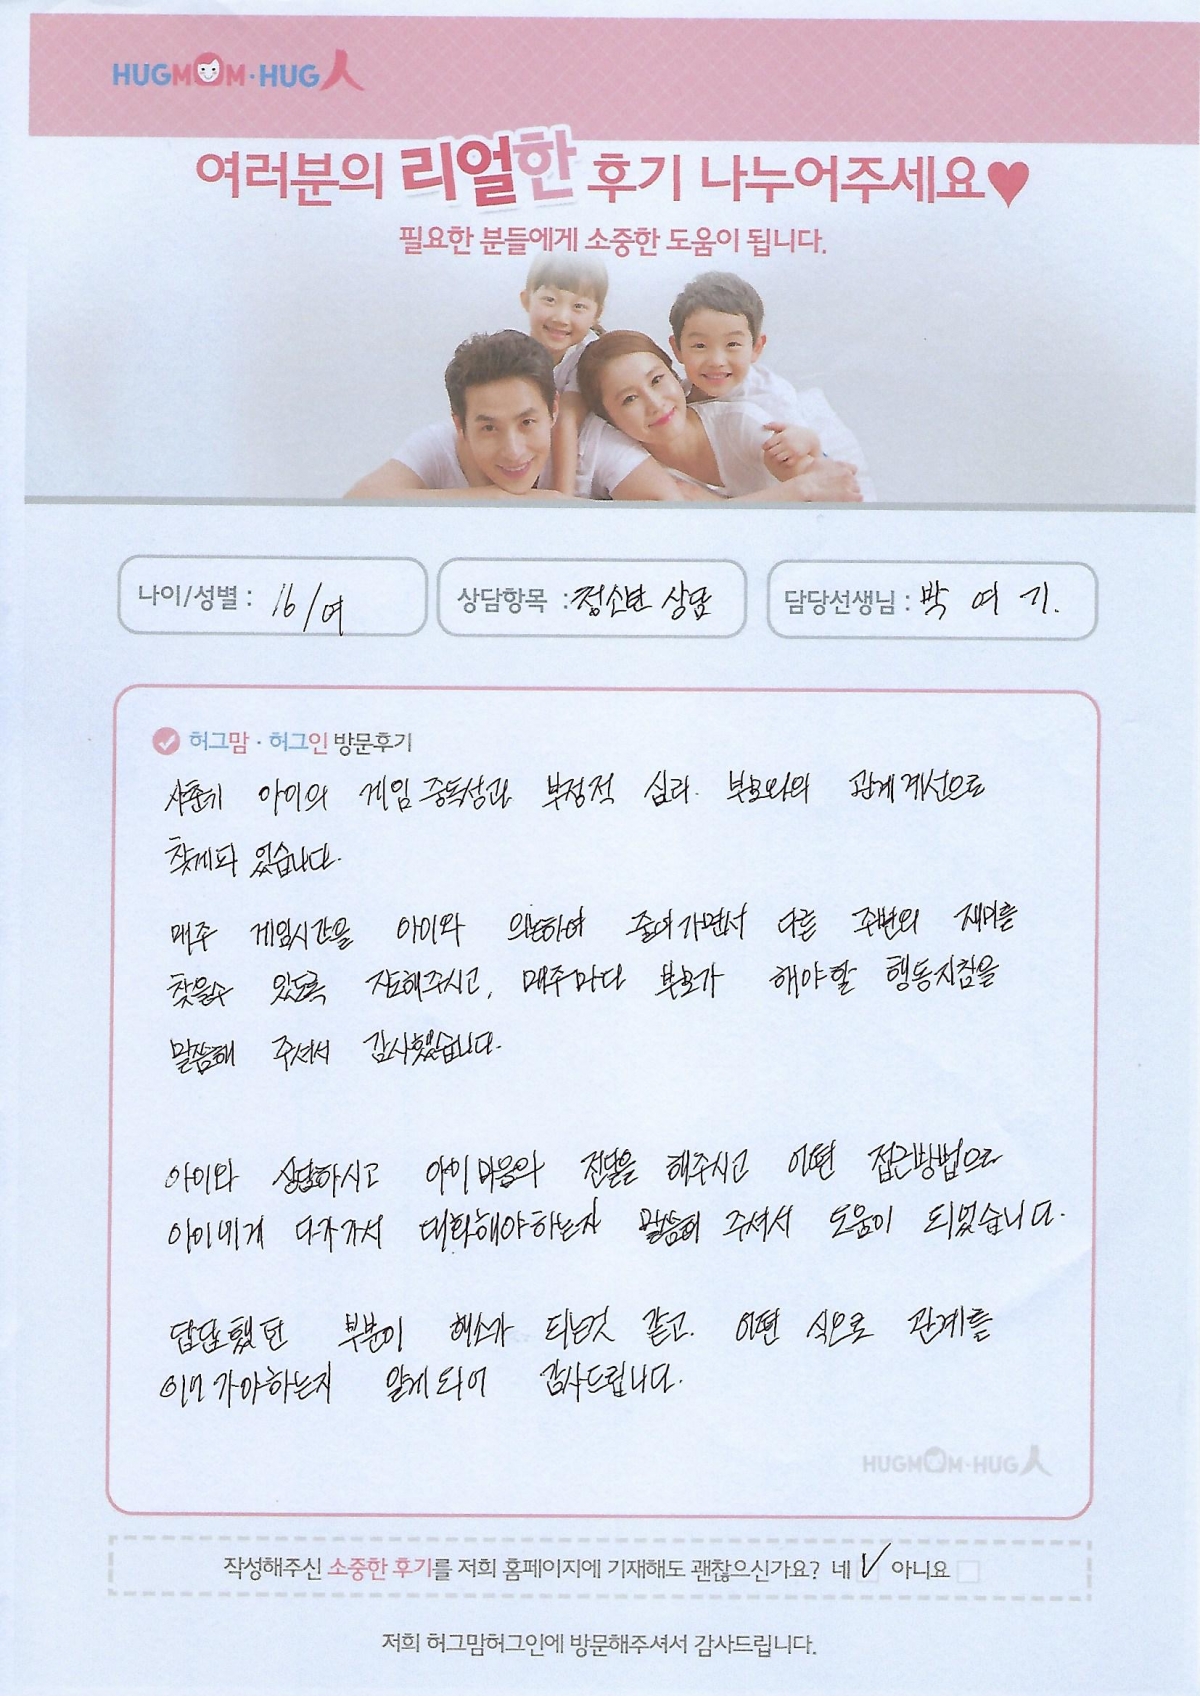 HUGMOM·HUG人
여러분의 리얼한 후기 나누어주세요♥
필요한 분들에게 소중한 도움이 됩니다.
나이/성별 : 16/여
상담항목 : 청소년 상담
담당선생님 : 박 여 기.
허그맘·허그인 방문후기
사춘기 아이의 게임 중독성과 부정적 심리. 부모와의 관계 계선으로
찾게되 있습니다.
매주 게임시간을 아이와 의논하여 줄여가면서 다른 주변의 재미를
찾을수 있도록 지도해주시고, 매주마다 부모가 해야할 행동지침을
말씀해 주셔서 감사했습니다.
아이와 상담하시고 아이 마음의 전달을 해주시고 어떤 접근방법으로
아이에게 다가가서 대화해야하는지 말씀해 주셔서 도움이 되었습니다.
답답했던 부분이 해소가 되는것 같고. 어떤 식으로 관계를
이어가야하는지 알게되어 감사드립니다.
HUGMOM·HUG人
작성해주신 소중한 후기를 저희 홈페이지에 기재해도 괜찮으신가요? 네 ✓ 아니요
저희 허그맘허그인에 방문해주셔서 감사드립니다.